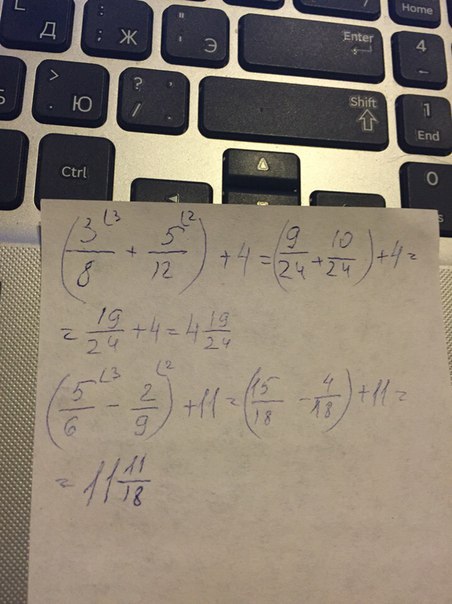 Д : ; Ж " ' Э Enter 4 ← Home
> . Ю ? , / . Shift 1 End
Ctrl 0
(3/8 ⌊3 + 5/12 ⌊2) + 4 = (9/24 + 10/24) + 4 =
= 19/24 + 4 = 4 19/24
(5/6 ⌊3 - 2/9 ⌊2) + 11 = (15/18 - 4/18) + 11 =
= 11 11/18